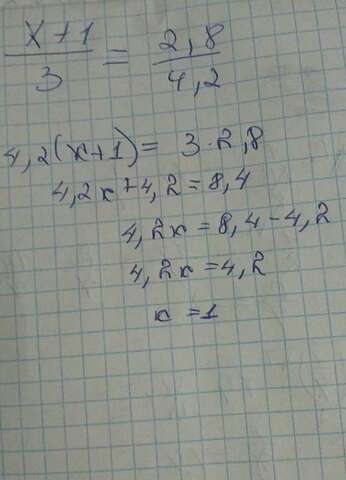 x+1/3 = 2,8/4,2
4,2(x+1)= 3·2,8
4,2x+4,2=8,4
4,2x=8,4-4,2
4,2x=4,2
x=1